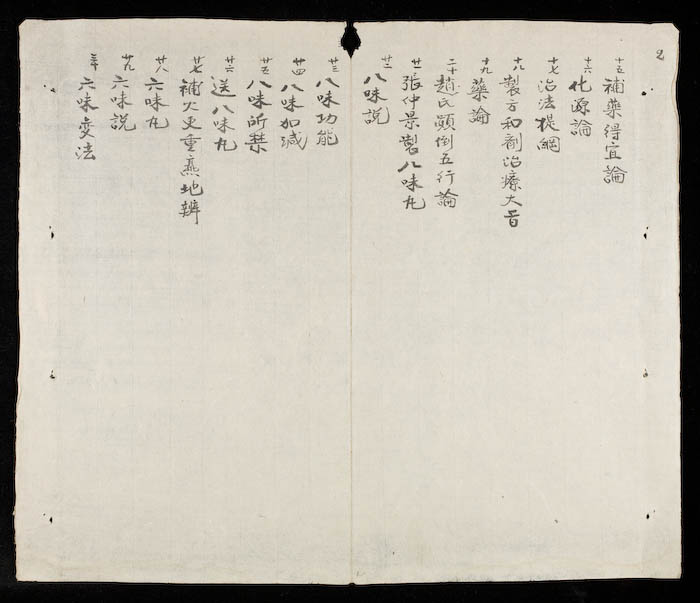 2
十五 補藥得宜論
十六 化源論
十七 治法提綱
十八 製方和劑治療大旨
十九 藥論
二十 趙氏顛倒五行論
廿一 張仲景製八味丸
廿二 八味說
廿三 八味功能
廿四 八味加減
廿五 八味所禁
廿六 送八味丸
廿七 補火更重熹地辨
廿八 六味丸
廿九 六味說
三十 六味变法